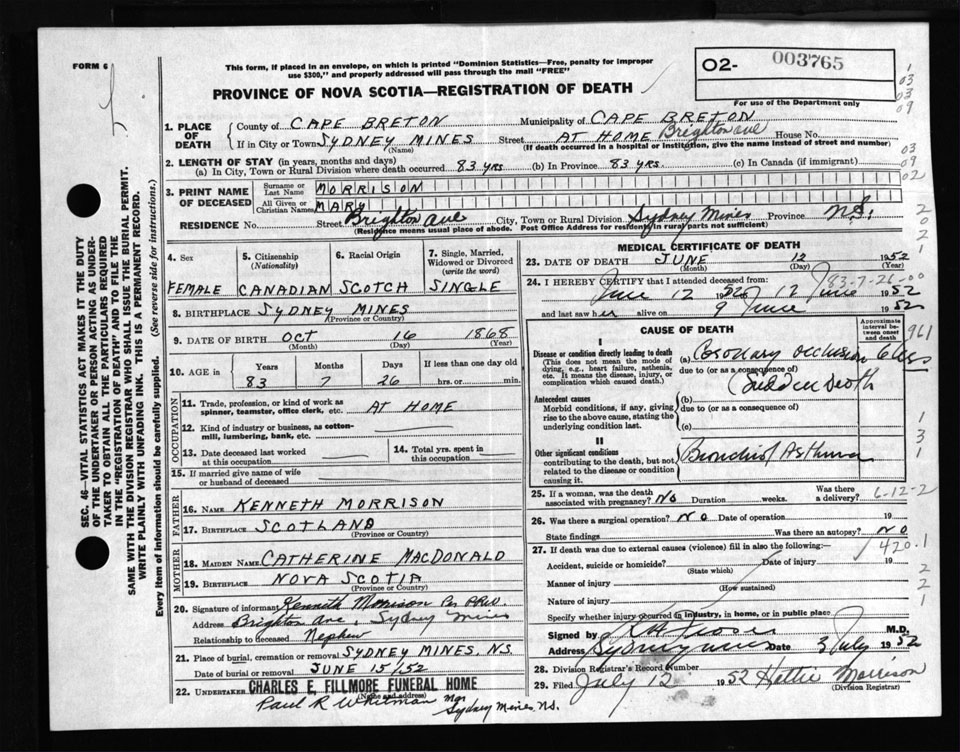 FORM 6
This form, if placed in an envelope, on which is printed "Dominion Statistics—Free, penalty for improper
use $300," and properly addressed will pass through the mail "FREE"
PROVINCE OF NOVA SCOTIA—REGISTRATION OF DEATH
O2- 003765
For use of the Department only
1. PLACE OF DEATH
County of CAPE BRETON Municipality of CAPE BRETON
If in City or Town SYDNEY MINES Street AT HOME Brighton ave House No.
(Name) (If death occurred in a hospital or institution, give the name instead of street and number)
2. LENGTH OF STAY (in years, months and days)
(a) In City, Town or Rural Division where death occurred 83 yrs (b) In Province 83 yrs. (c) In Canada (if immigrant)
3. PRINT NAME OF DECEASED
Surname or Last Name MORRISON
All Given or Christian Names MARY
RESIDENCE No. Street Brighton ave City, Town or Rural Division Sydney Mines Province N.S.
(Residence means usual place of abode. Post Office Address for residents in rural parts not sufficient)
4. Sex
FEMALE
5. Citizenship
(Nationality)
CANADIAN
6. Racial Origin
SCOTCH
7. Single, Married,
Widowed or Divorced
(write the word)
SINGLE
8. BIRTHPLACE SYDNEY MINES
(Province or Country)
9. DATE OF BIRTH OCT 16 1868
(Month) (Day) (Year)
10. AGE in Years Months Days If less than one day old
83 7 26 hrs. or min.
OCCUPATION
11. Trade, profession, or kind of work as
spinner, teamster, office clerk, etc. AT HOME
12. Kind of industry or business, as cotton-
mill, lumbering, bank, etc.
13. Date deceased last worked
at this occupation
14. Total yrs. spent in
this occupation
15. If married give name of wife
or husband of deceased
FATHER
16. NAME KENNETH MORRISON
17. BIRTHPLACE SCOTLAND
(Province or Country)
MOTHER
18. MAIDEN NAME CATHERINE MACDONALD
19. BIRTHPLACE NOVA SCOTIA
(Province or Country)
20. Signature of informant Kenneth Morrison Per PRW.
Address Brighton Ave, Sydney Mines
Relationship to deceased Nephew
21. Place of burial, cremation or removal SYDNEY MINES, N.S.
Date of burial or removal JUNE 15/52
22. UNDERTAKER CHARLES E. FILLMORE FUNERAL HOME
(Name and address)
Paul R Whitman Mgr
Sydney Mines, N.S.
MEDICAL CERTIFICATE OF DEATH
23. DATE OF DEATH JUNE 12 1952
(Month) (Day) (Year)
24. I HEREBY CERTIFY that I attended deceased from:
83-7-26-00
June 12 1952 to 12 June 1952
and last saw her alive on 9 June 1952
CAUSE OF DEATH
Approximate
interval be-
tween onset
and death
I
Disease or condition directly leading to death
(This does not mean the mode of
dying, e.g., heart failure, asthenia,
etc. It means the disease, injury, or
complication which caused death.)
(a) Coronary occlusion
due to (or as a consequence of)
(Sudden death
Antecedent causes
Morbid conditions, if any, giving
rise to the above cause, stating the
underlying condition last.
(b)
due to (or as a consequence of)
(c)
II
Other significant conditions
contributing to the death, but not
related to the disease or condition
causing it.
Bronchial Asthma
25. If a woman, was the death
associated with pregnancy? NO Duration weeks. Was there
a delivery? 6-12-2
26. Was there a surgical operation? NO Date of operation 19
State findings Was there an autopsy? NO
27. If death was due to external causes (violence) fill in also the following:— 420.1
Accident, suicide or homicide? Date of injury 19
(State which)
Manner of injury
(How sustained)
Nature of injury
Specify whether injury occurred in industry, in home, or in public place
Signed by M.D.
Address Sydney Mines Date 3 July 1952
28. Division Registrar's Record Number
29. Filed July 12 1952 Hattie Morrison
(Division Registrar)
SEC. 46—VITAL STATISTICS ACT MAKES IT THE DUTY
OF THE UNDERTAKER OR PERSON ACTING AS UNDER-
TAKER TO OBTAIN ALL THE PARTICULARS REQUIRED
IN THE "REGISTRATION OF DEATH" AND TO FILE THE
SAME WITH THE DIVISION REGISTRAR WHO SHALL ISSUE THE BURIAL PERMIT.
WRITE PLAINLY WITH UNFADING INK. THIS IS A PERMANENT RECORD.
Every item of information should be carefully supplied. (See reverse side for instructions.)
1
03
03
09
03
09
02
2
0
2
1
961
1
3
1
2
2
1